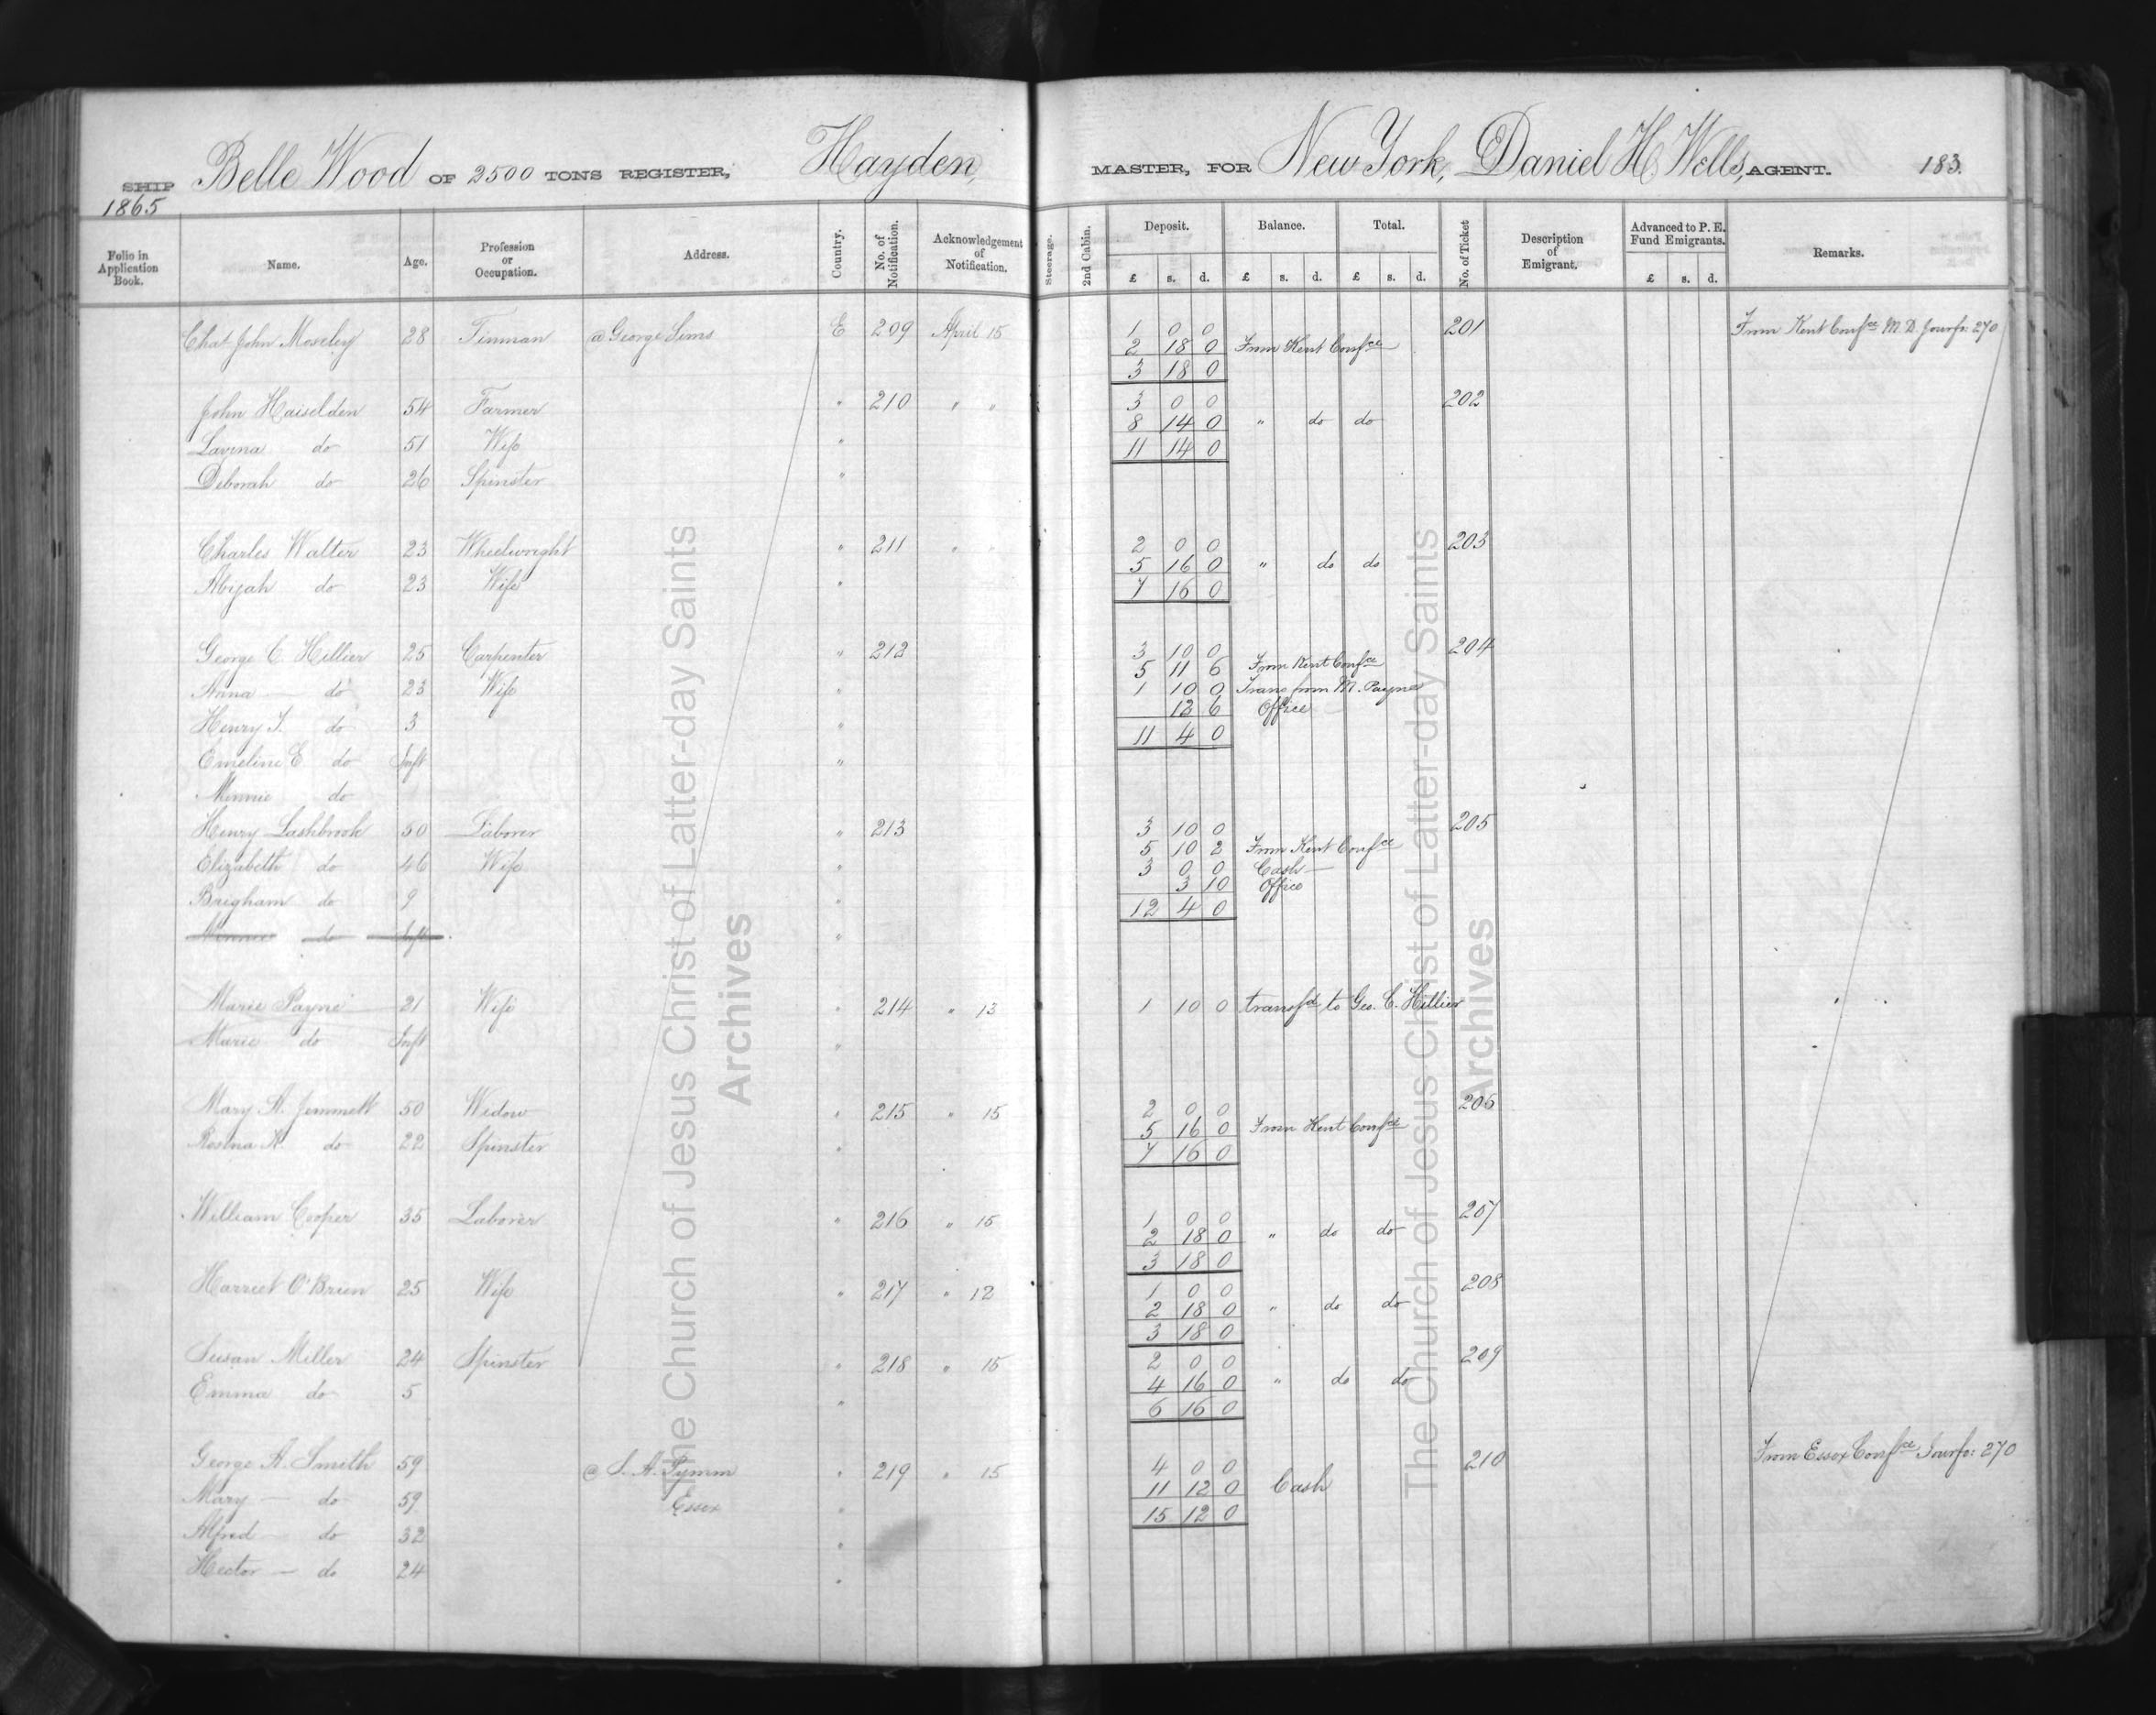 SHIP Belle Wood OF 2500 TONS REGISTER, Hayden, MASTER, FOR New York, Daniel H Wells, AGENT. 183.
1865
Folio in Application Book. Name. Age. Profession or Occupation. Address. Country. No. of Notification. Acknowledgement of Notification. Steerage. 2nd Cabin. Deposit. Balance. Total. No. of Ticket Description of Emigrant. Advanced to P. E. Fund Emigrants. Remarks.
£ s. d. £ s. d. £ s. d. £ s. d.
Chas John Moseley 28 Tinman @ George Sims E 209 April 15 1 0 0 201 From Kent Confce M. D. Jourfo: 270
2 18 0 From Kent Confce
3 18 0
John Haiselden 54 Farmer " 210 " " 3 0 0 202
8 14 0 " do do
Lavina do 51 Wife " 11 14 0
Deborah do 26 Spinster "
Charles Walter 23 Wheelwright " 211 " " 2 0 0 203
5 16 0 " do do
Abijah do 23 Wife " 7 16 0
George C. Hillier 25 Carpenter " 212 3 10 0 204
5 11 6 From Kent Confce
Anna do 23 Wife " 1 10 0 Trans from M. Payne
12 6 Office
Henry J. do 3 " 11 4 0
Emeline E do Inft "
Minnie do
Henry Lashbrook 50 Laborer " 213 3 10 0 205
5 10 2 From Kent Confce
Elizabeth do 46 Wife " 3 0 0 Cash
3 10 Office
Brigham do 9 " 12 4 0
Minnie do Inft "
Marie Payne 21 Wife " 214 " 13 1 10 0 transfd to Geo. C. Hillier
Marie do Inft "
Mary A. Jemmett 50 Widow " 215 " 15 2 0 0 206
5 16 0 From Kent Confce
Rosina A. do 22 Spinster " 7 16 0
William Cooper 35 Laborer " 216 " 15 1 0 0 207
2 18 0 " do do
3 18 0
Harriet O'Brien 25 Wife " 217 " 12 1 0 0 208
2 18 0 " do do
3 18 0
Susan Miller 24 Spinster " 218 " 15 2 0 0 209
Emma do 5 " 4 16 0 " do do
6 16 0
George A. Smith 59 @ S. A. Pymm " 219 " 15 4 0 0 210 From Essex Confce Jourfo: 270
Mary do 59 Essex " 11 12 0 Cash
15 12 0
Alfred do 32 "
Hector do 24 "
The Church of Jesus Christ of Latter-day Saints
Archives
The Church of Jesus Christ of Latter-day Saints
Archives